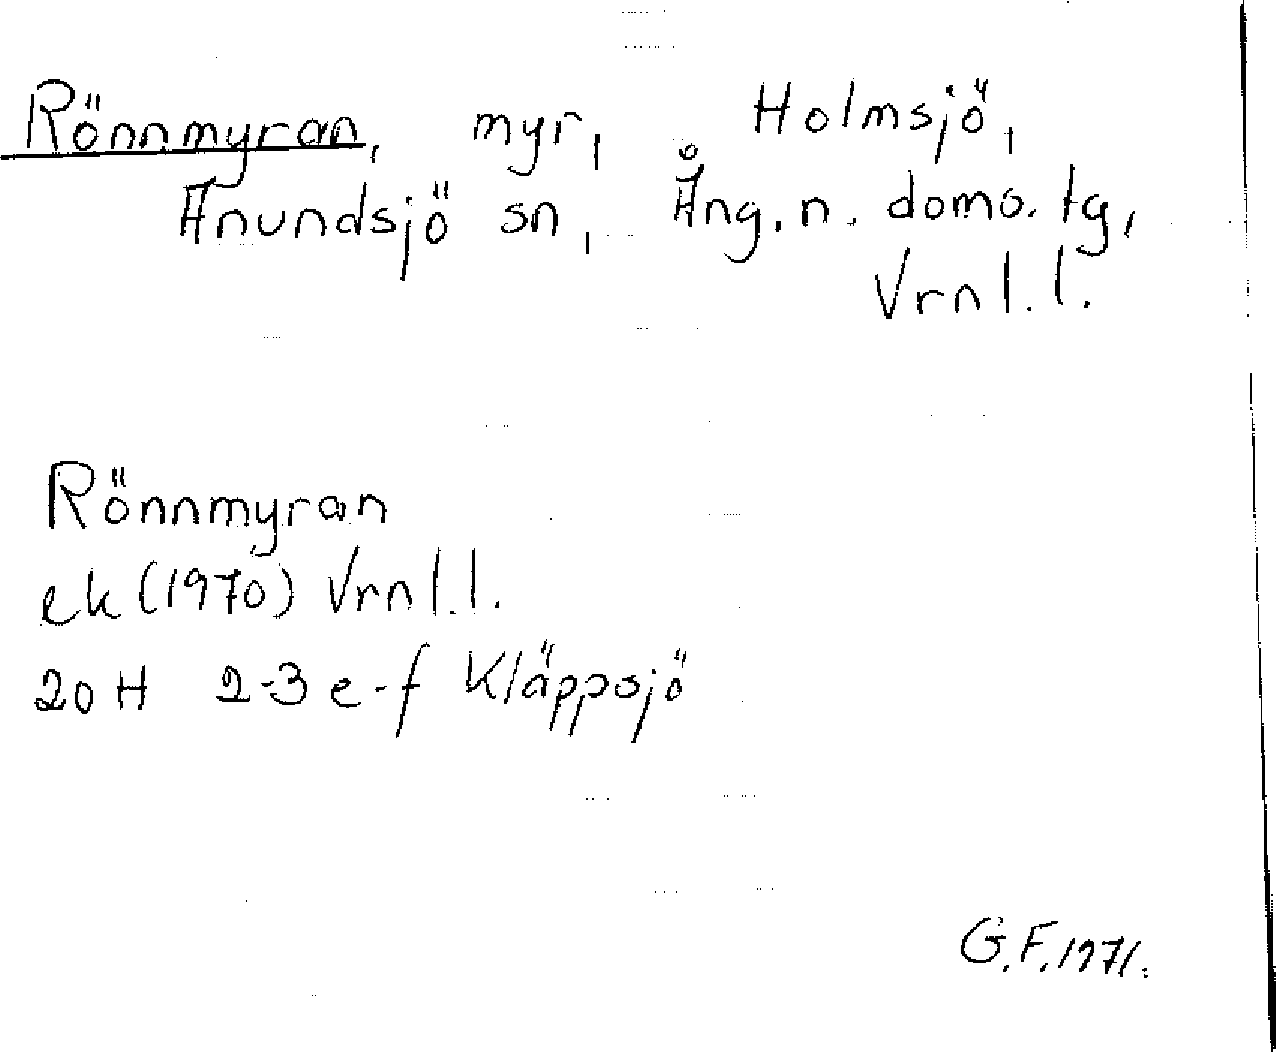 Rönnmyran, myr, Holmsjö,
Anundsjö sn, Ång. n. doms. tg,
Vrnl.l.
Rönnmyran
ek (1970) Vrnl.l.
20 H 2-3 e-f Kläppsjö
G.F. 1971.